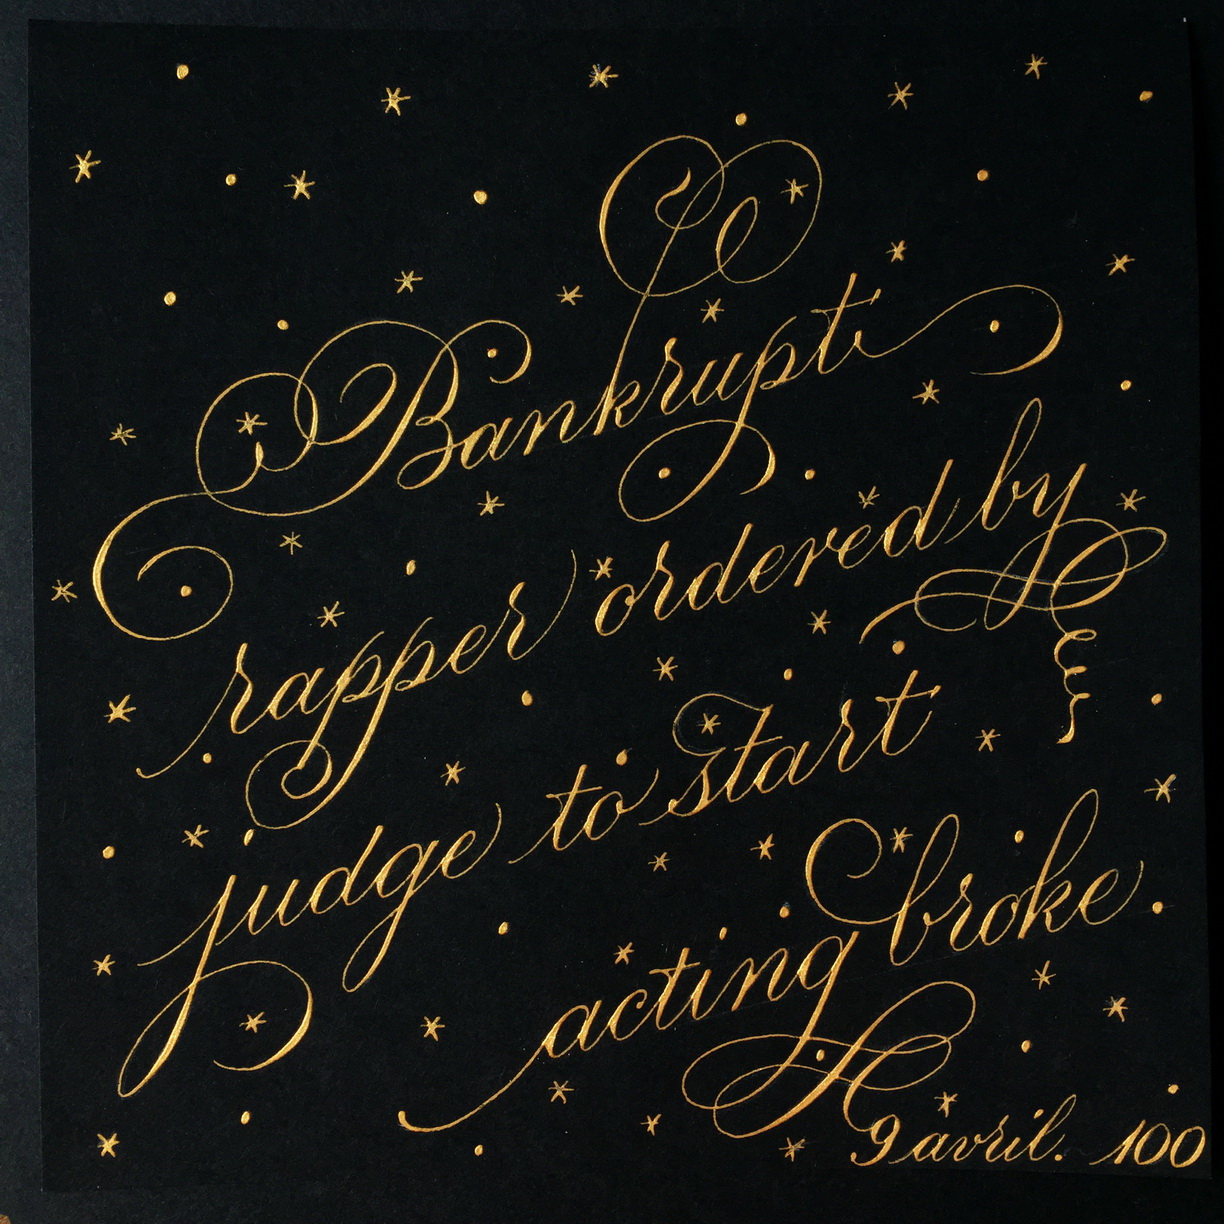 Bankrupt
rapper ordered by
judge to start
acting broke
9 avril. 100